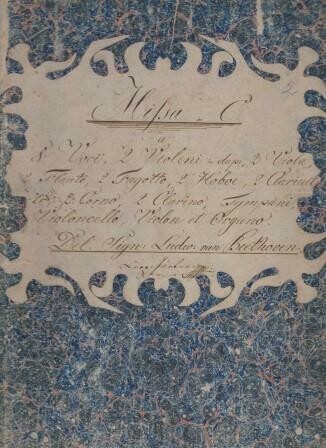 2
Missa in C
a
Voci, 2 Violini 2 Viole
Flauti, 2 Fagotte, 2 Hoboe, 2 Clarinette
Corno, 2 Clarino, Tympani
Violoncello, Violon et Organo.
Del: Sign: Ludw: van Beethoven